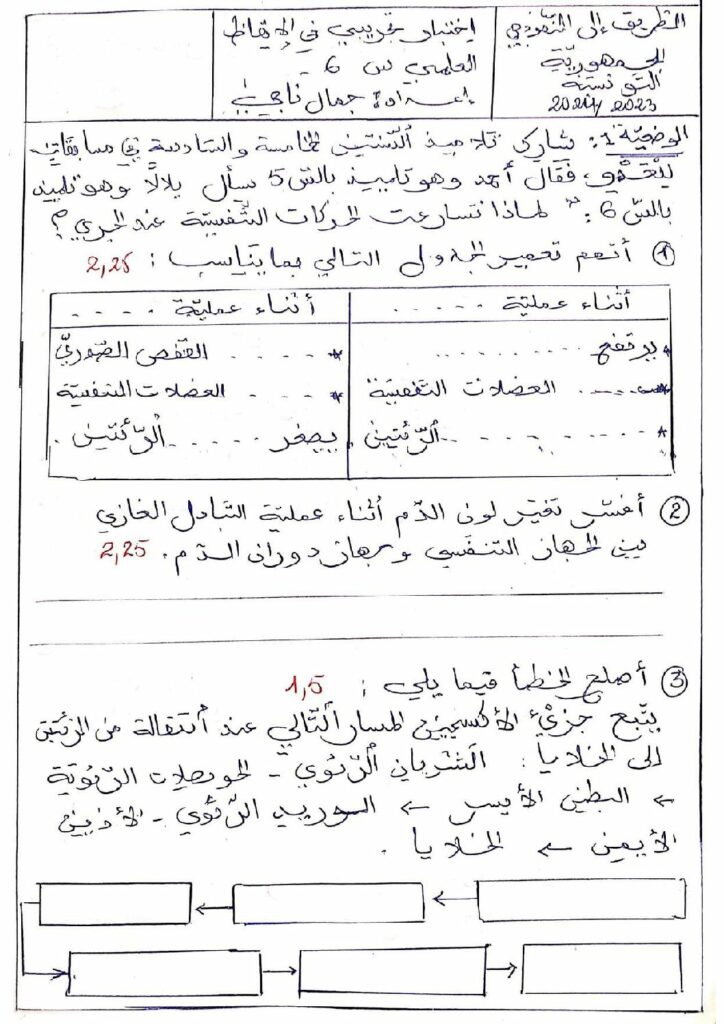 الطريق إلى النموذجي
الجمهوريّة
التونسيّة
2024/2023
اختبار تجريبي في الإيقاظ
العلمي س 6.
إعداد: جمال ناجي
الوضعيّة 1: شارك تلاميذ السنتين الخامسة والسّادسة في مسابقات
للعَدْوِ، فقال أحمد وهو تلميذ بالس 5 سأل بلالاً وهو تلميذ
بالسّ 6: "لماذا تسارعت الحركات التّنفسيّة عند الجري؟
① أتمم تعمير الجدول التالي بما يناسب: 2,25
أثناء عمليّة . . . . .
أثناء عمليّة . . . .
* يرتفع . . . . . . . . . .
* . . . . القفص الصّدريّ
* . . . . العضلات التنفسيّة
* . . . . العضلات التنفسيّة
* . . . . . . . . الرّئتين
* يصغر . . . . . الرّئتين.
② أفسّر تغيّر لون الدّم أثناء عمليّة التبادل الغازي
بين الجهاز التنفّسي وجهاز دوران الدّم. 2,25
③ أصلح الخطأ فيما يلي: 1,5
يتّبع جزيْءُ الأكسجين المسار التّالي عند انتقاله من الرّئتين
الى الخلايا: الشريان الرّئوي - الحويصلات الرّئويّة
← البطين الأيسر ← الوريد الرّئوي - الأذين
الأيمن ← الخلايا.